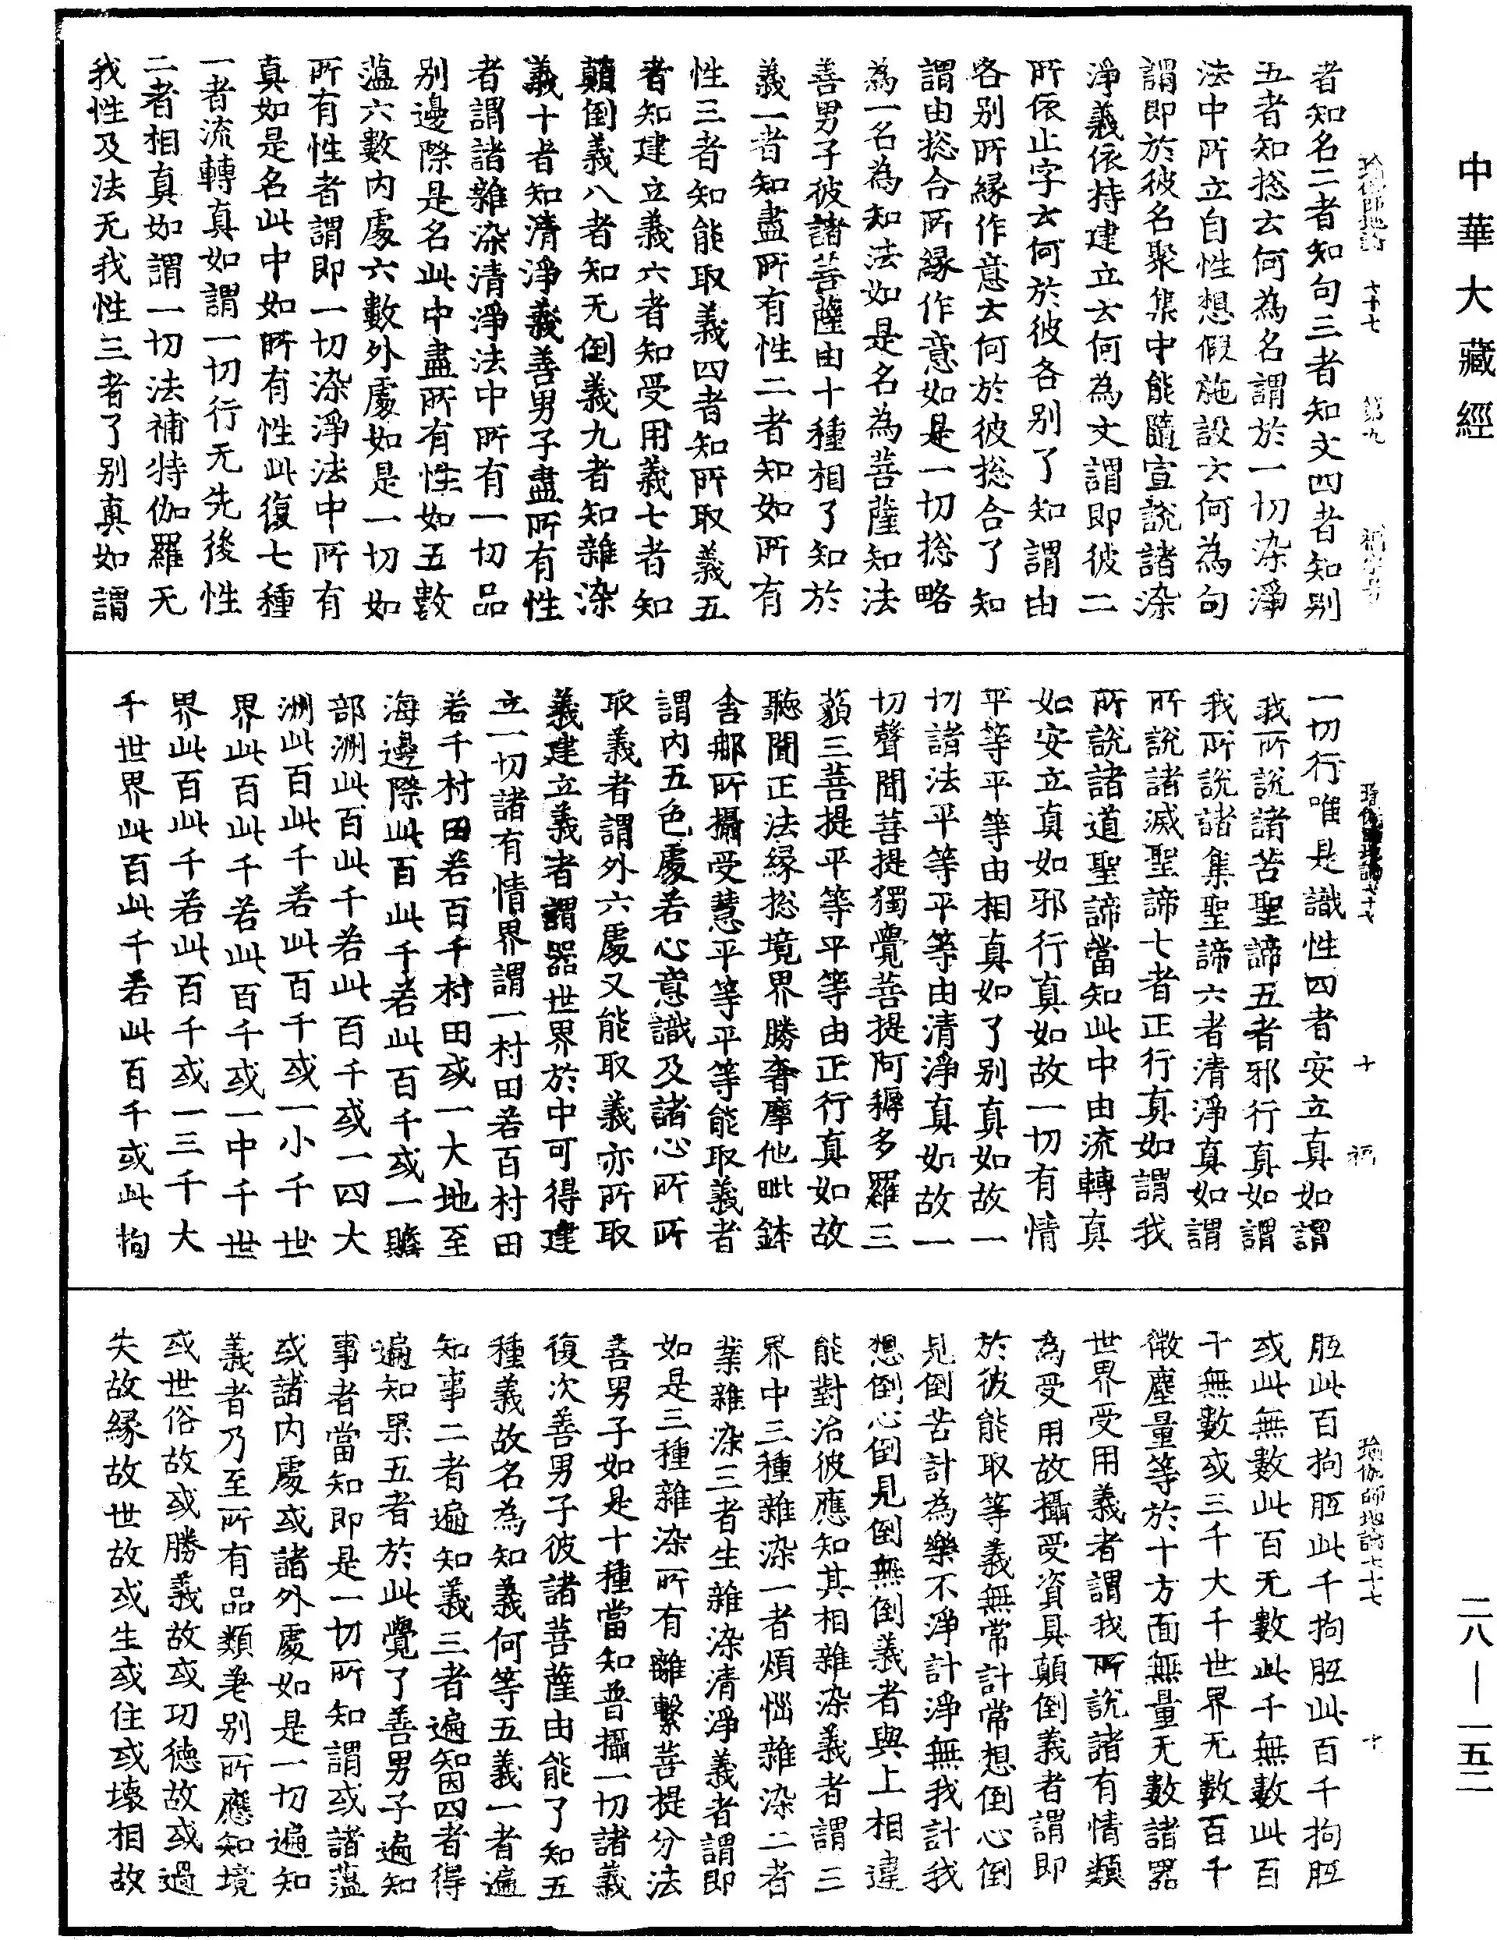 中華大藏經
者知名二者知句三者知文四者知别
五者知捴云何為名謂於一切染淨
法中所立自性想假施設云何為句
謂即於彼名聚集中能隨宣說諸染
淨義依持建立云何為文謂即彼二
所依止字云何於彼各别了知謂由
各别所縁作意云何於彼捴合了知
謂由捴合所縁作意如是一切捴略
為一名為知法如是名為菩薩知法
善男子彼諸菩薩由十種相了知於
義一者知盡所有性二者知如所有
性三者知能取義四者知所取義五
者知建立義六者知受用義七者知
顛倒義八者知无倒義九者知雜染
義十者知清淨義善男子盡所有性
者謂諸雜染清淨法中所有一切品
别邊際是名此中盡所有性如五數
蕰六數内處六數外處如是一切如
所有性者謂即一切染淨法中所有
真如是名此中如所有性此復七種
一者流轉真如謂一切行无先後性
二者相真如謂一切法補特伽羅无
我性及法无我性三者了别真如謂
一切行唯是識性四者安立真如謂
我所說諸苦聖諦五者邪行真如謂
我所說諸集聖諦六者清淨真如謂
所說諸滅聖諦七者正行真如謂我
所說諸道聖諦當知此中由流轉真
如安立真如邪行真如故一切有情
平等平等由相真如了别真如故一
切諸法平等平等由清淨真如故一
切聲聞菩提獨覺菩提阿耨多羅三
藐三菩提平等平等由正行真如故
聽聞正法縁捴境界勝奢摩他毗鉢
舍那所攝受慧平等平等能取義者
謂内五色處若心意識及諸心所所
取義者謂外六處又能取義亦所取
義建立義者謂器世界於中可得建
立一切諸有情界謂一村田若百村田
若千村田若百千村田或一大地至
海邊際此百此千若此百千或一贍
部洲此百此千若此百千或一四大
洲此百此千若此百千或一小千世
界此百此千若此百千或一中千世
界此百此千若此百千或一三千大
千世界此百此千若此百千或此拘
胝此百拘胝此千拘胝此百千拘胝
或此無數此百无數此千無數此百
千無數或三千大千世界无數百千
微塵量等於十方面無量无數諸器
世界受用義者謂我所說諸有情類
為受用故攝受資具顛倒義者謂即
於彼能取等義無常計常想倒心倒
見倒苦計為樂不淨計淨無我計我
想倒心倒見倒無倒義者與上相違
能對治彼應知其相雜染義者謂三
界中三種雜染一者煩惱雜染二者
業雜染三者生雜染清淨義者謂即
如是三種雜染所有離繫菩提分法
善男子如是十種當知普攝一切諸義
復次善男子彼諸菩薩由能了知五
種義故名為知義何等五義一者遍
知事二者遍知義三者遍知因四者得
遍知果五者於此覺了善男子遍知
事者當知即是一切所知謂或諸蕰
或諸内處或諸外處如是一切遍知
義者乃至所有品類差别所應知境
或世俗故或勝義故或功德故或過
失故縁故世故或生或住或壞相故
瑜伽師地論七十七
二八—一五二